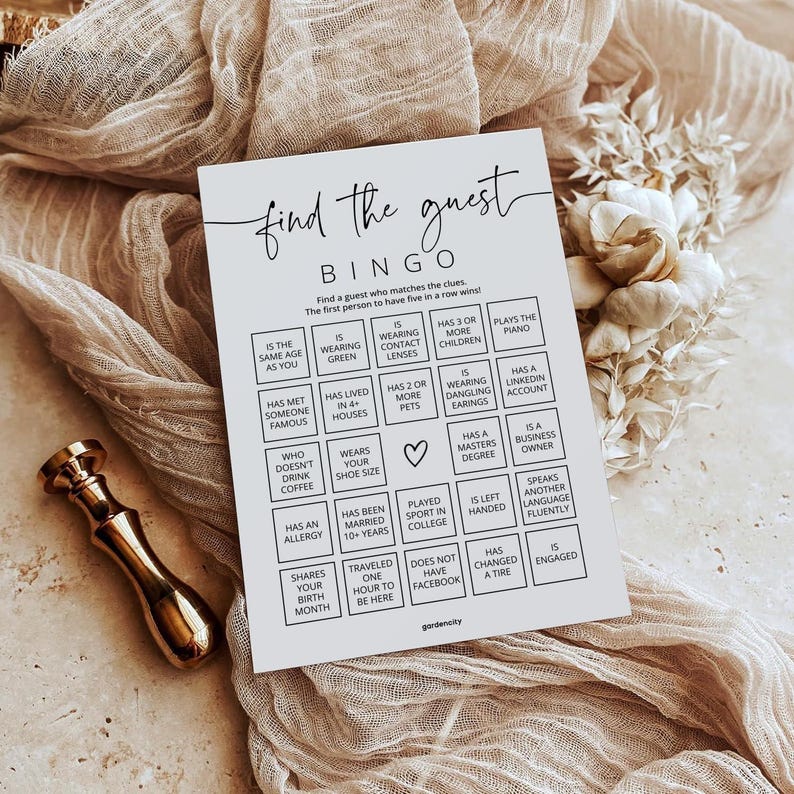 find the guest
BINGO
Find a guest who matches the clues.
The first person to have five in a row wins!
IS THE
SAME AGE
AS YOU
IS
WEARING
GREEN
IS
WEARING
CONTACT
LENSES
HAS 3 OR
MORE
CHILDREN
PLAYS THE
PIANO
HAS MET
SOMEONE
FAMOUS
HAS LIVED
IN 4+
HOUSES
HAS 2 OR
MORE
PETS
IS
WEARING
DANGLING
EARINGS
HAS A
LINKEDIN
ACCOUNT
WHO
DOESN'T
DRINK
COFFEE
WEARS
YOUR
SHOE SIZE
HAS A
MASTERS
DEGREE
IS A
BUSINESS
OWNER
HAS AN
ALLERGY
HAS BEEN
MARRIED
10+ YEARS
PLAYED
SPORT IN
COLLEGE
IS LEFT
HANDED
SPEAKS
ANOTHER
LANGUAGE
FLUENTLY
SHARES
YOUR
BIRTH
MONTH
TRAVELED
ONE
HOUR TO
BE HERE
DOES NOT
HAVE
FACEBOOK
HAS
CHANGED
A TIRE
IS
ENGAGED
gardencity